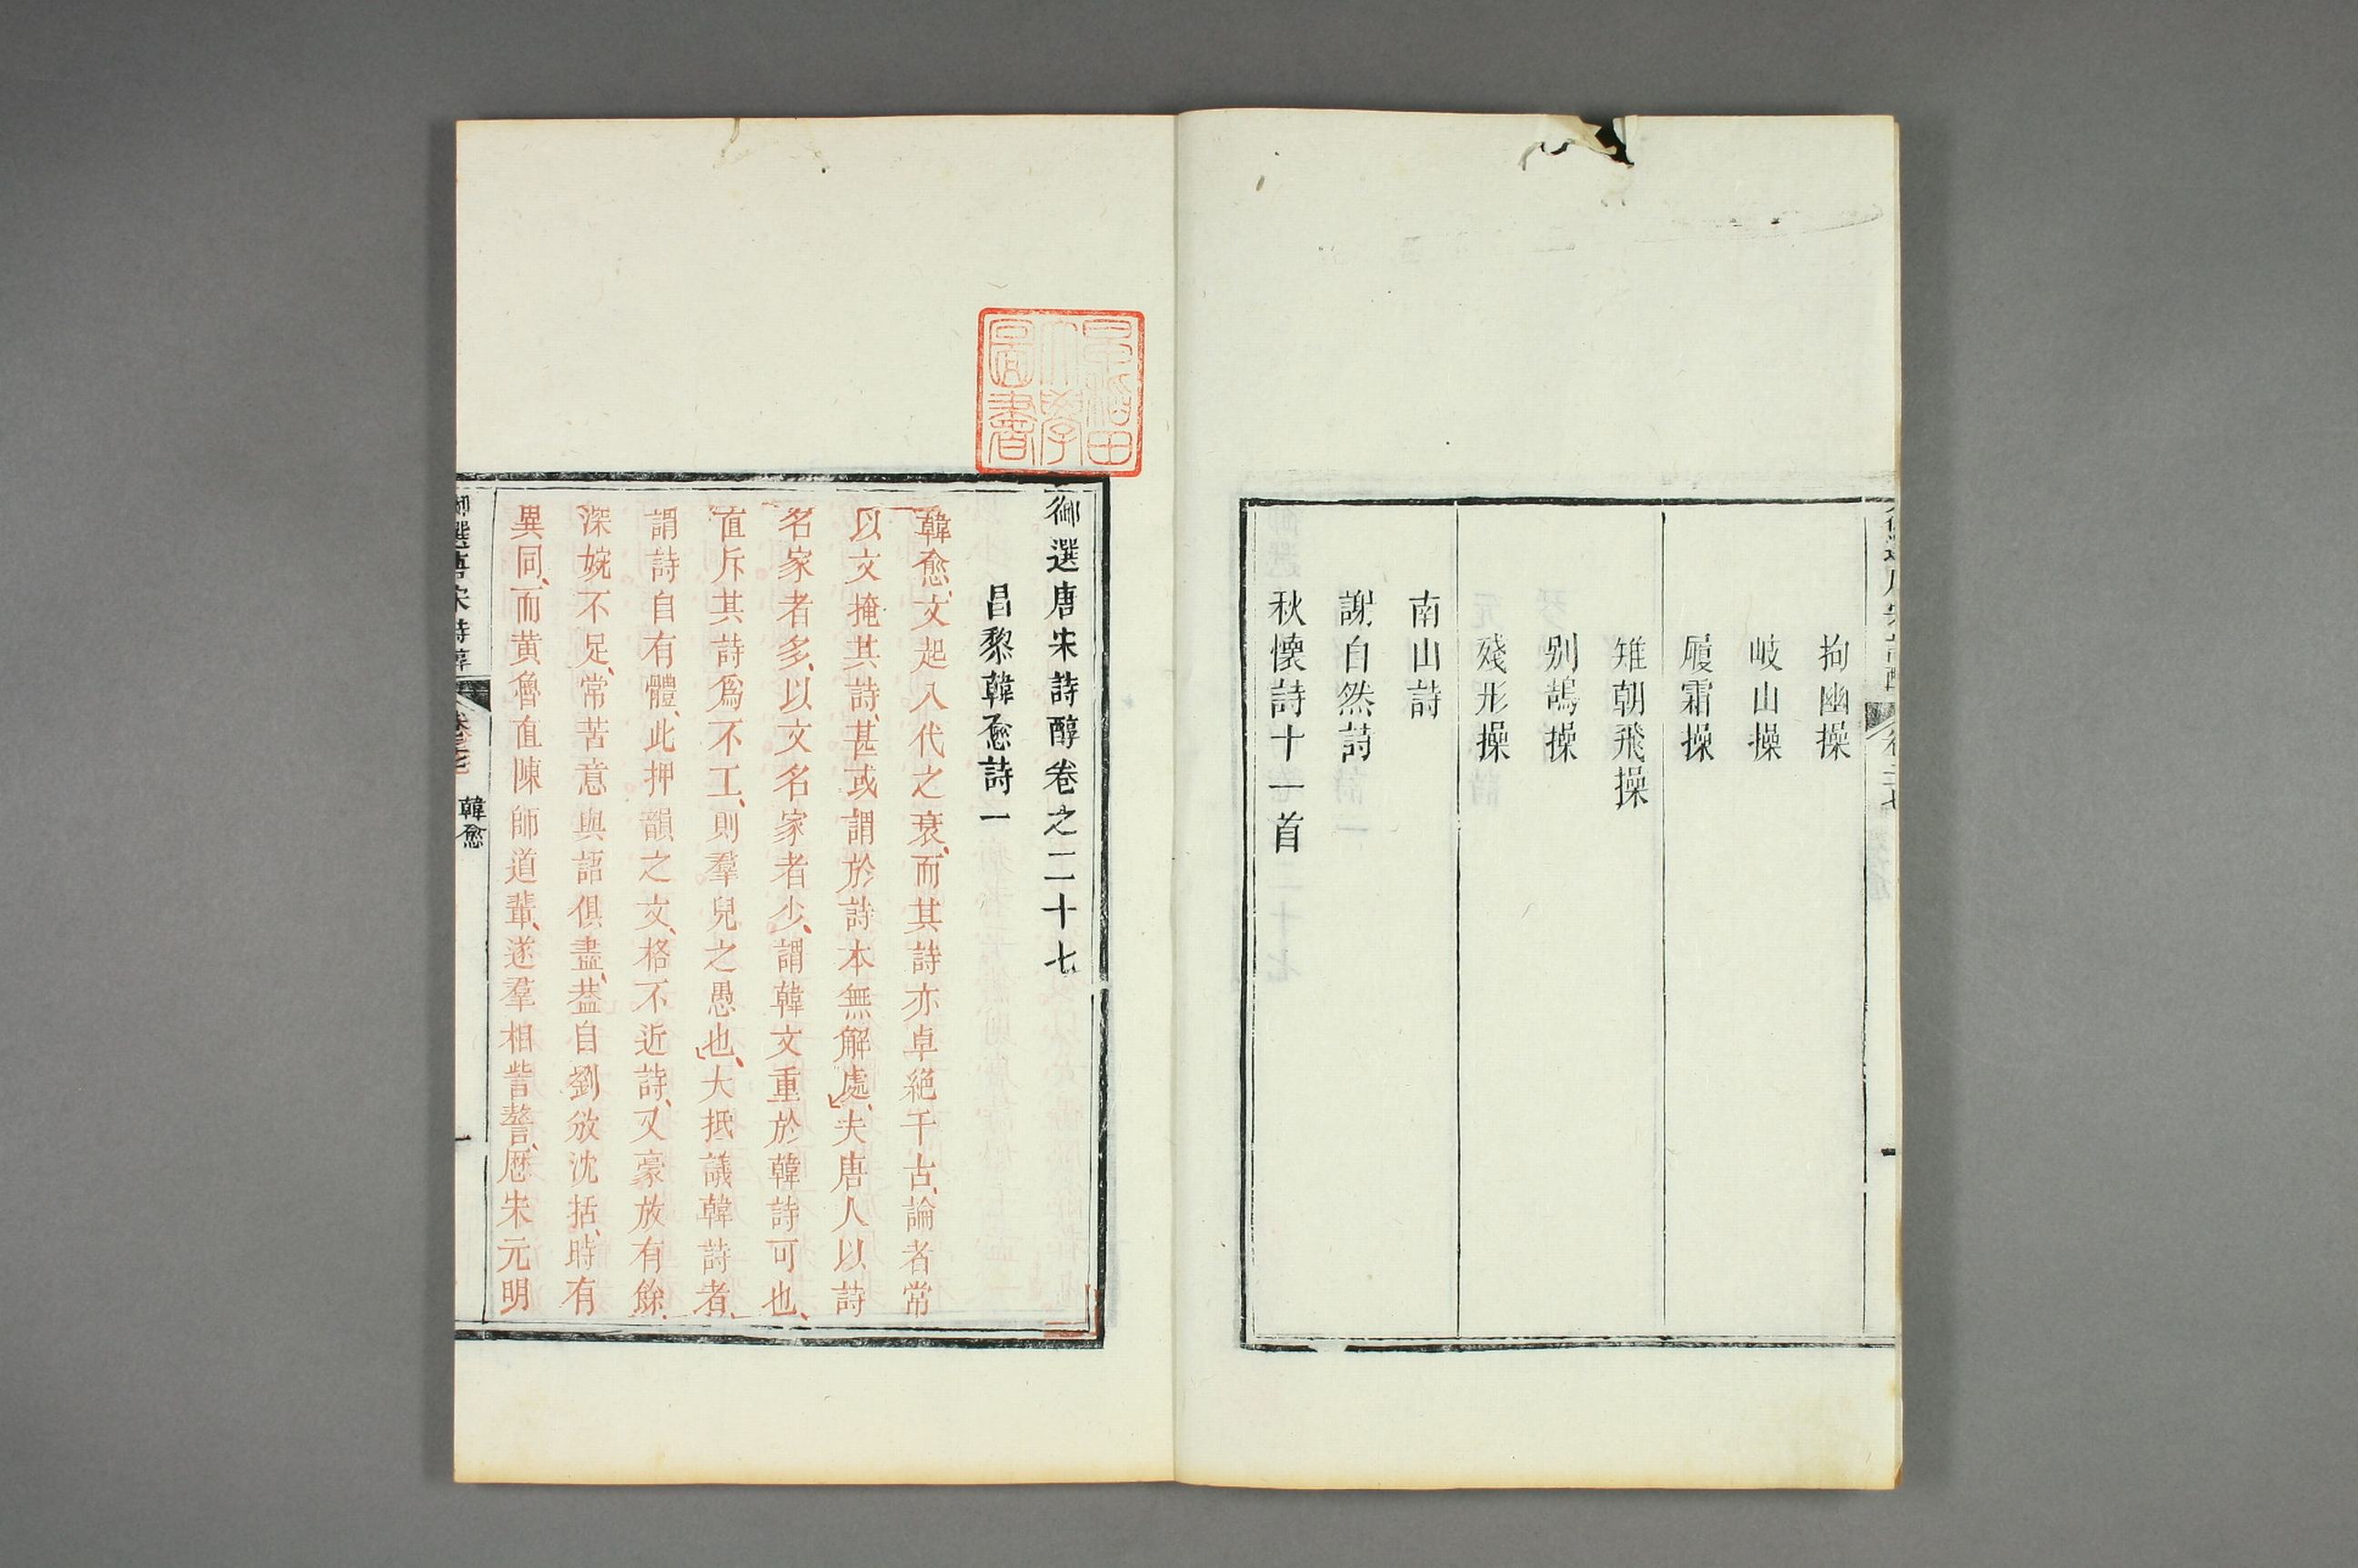 拘幽操
岐山操
履霜操
雉朝飛操
別鵠操
殘形操
南山詩
謝自然詩
秋懷詩十一首
早稻田
大學
圖書
御選唐宋詩醇卷之二十七
昌黎韓愈詩一
韓愈、文起八代之衰、而其詩亦卓絕千古、論者常
以文掩其詩、甚或謂於詩本無解處、夫唐人以詩
名家者多、以文名家者少、謂韓文重於韓詩可也、
直斥其詩爲不工、則羣兒之愚也、大抵議韓詩者、
謂詩自有體、此押韻之文、格不近詩、又豪放有餘、
深婉不足、常苦意與語俱盡、葢自劉攽沈括、時有
異同、而黃魯直陳師道輩、遂羣相訾謷、歷宋元明
御選唐宋詩醇
韓愈
一